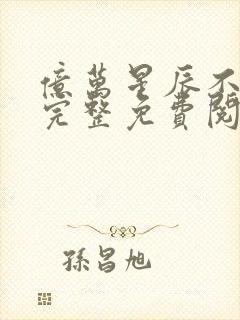 億萬星辰不
完整免費閱
孫昌旭